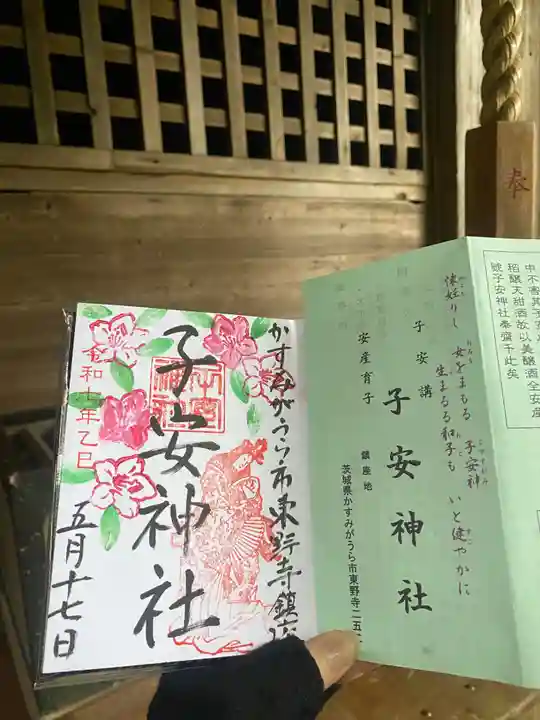 奉
中不害其子
稻釀天甜酒故以美釀酒全安産
號子安神社奉齋千此矣
懐妊りし
女をまもる 子安神
生まるる和子も いと健やかに
子安講
子安神社
安産育子
鎮座地
茨城県かすみがうら市東野寺二五
かすみがうら市東野寺鎮座
子安神社
令和七年乙巳
五月十七日